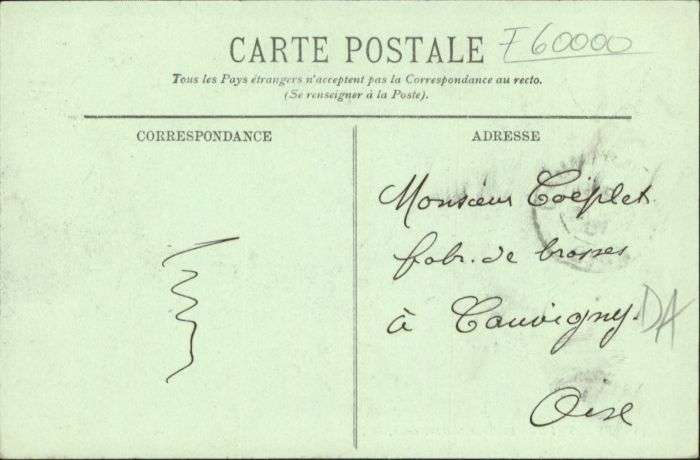 CARTE POSTALE
F60000
Tous les Pays étrangers n'acceptent pas la Correspondance au recto.
(Se renseigner à la Poste).
CORRESPONDANCE
ADRESSE
Monsieur
fabr. de brosses
à Cauvigny
DA
Oise